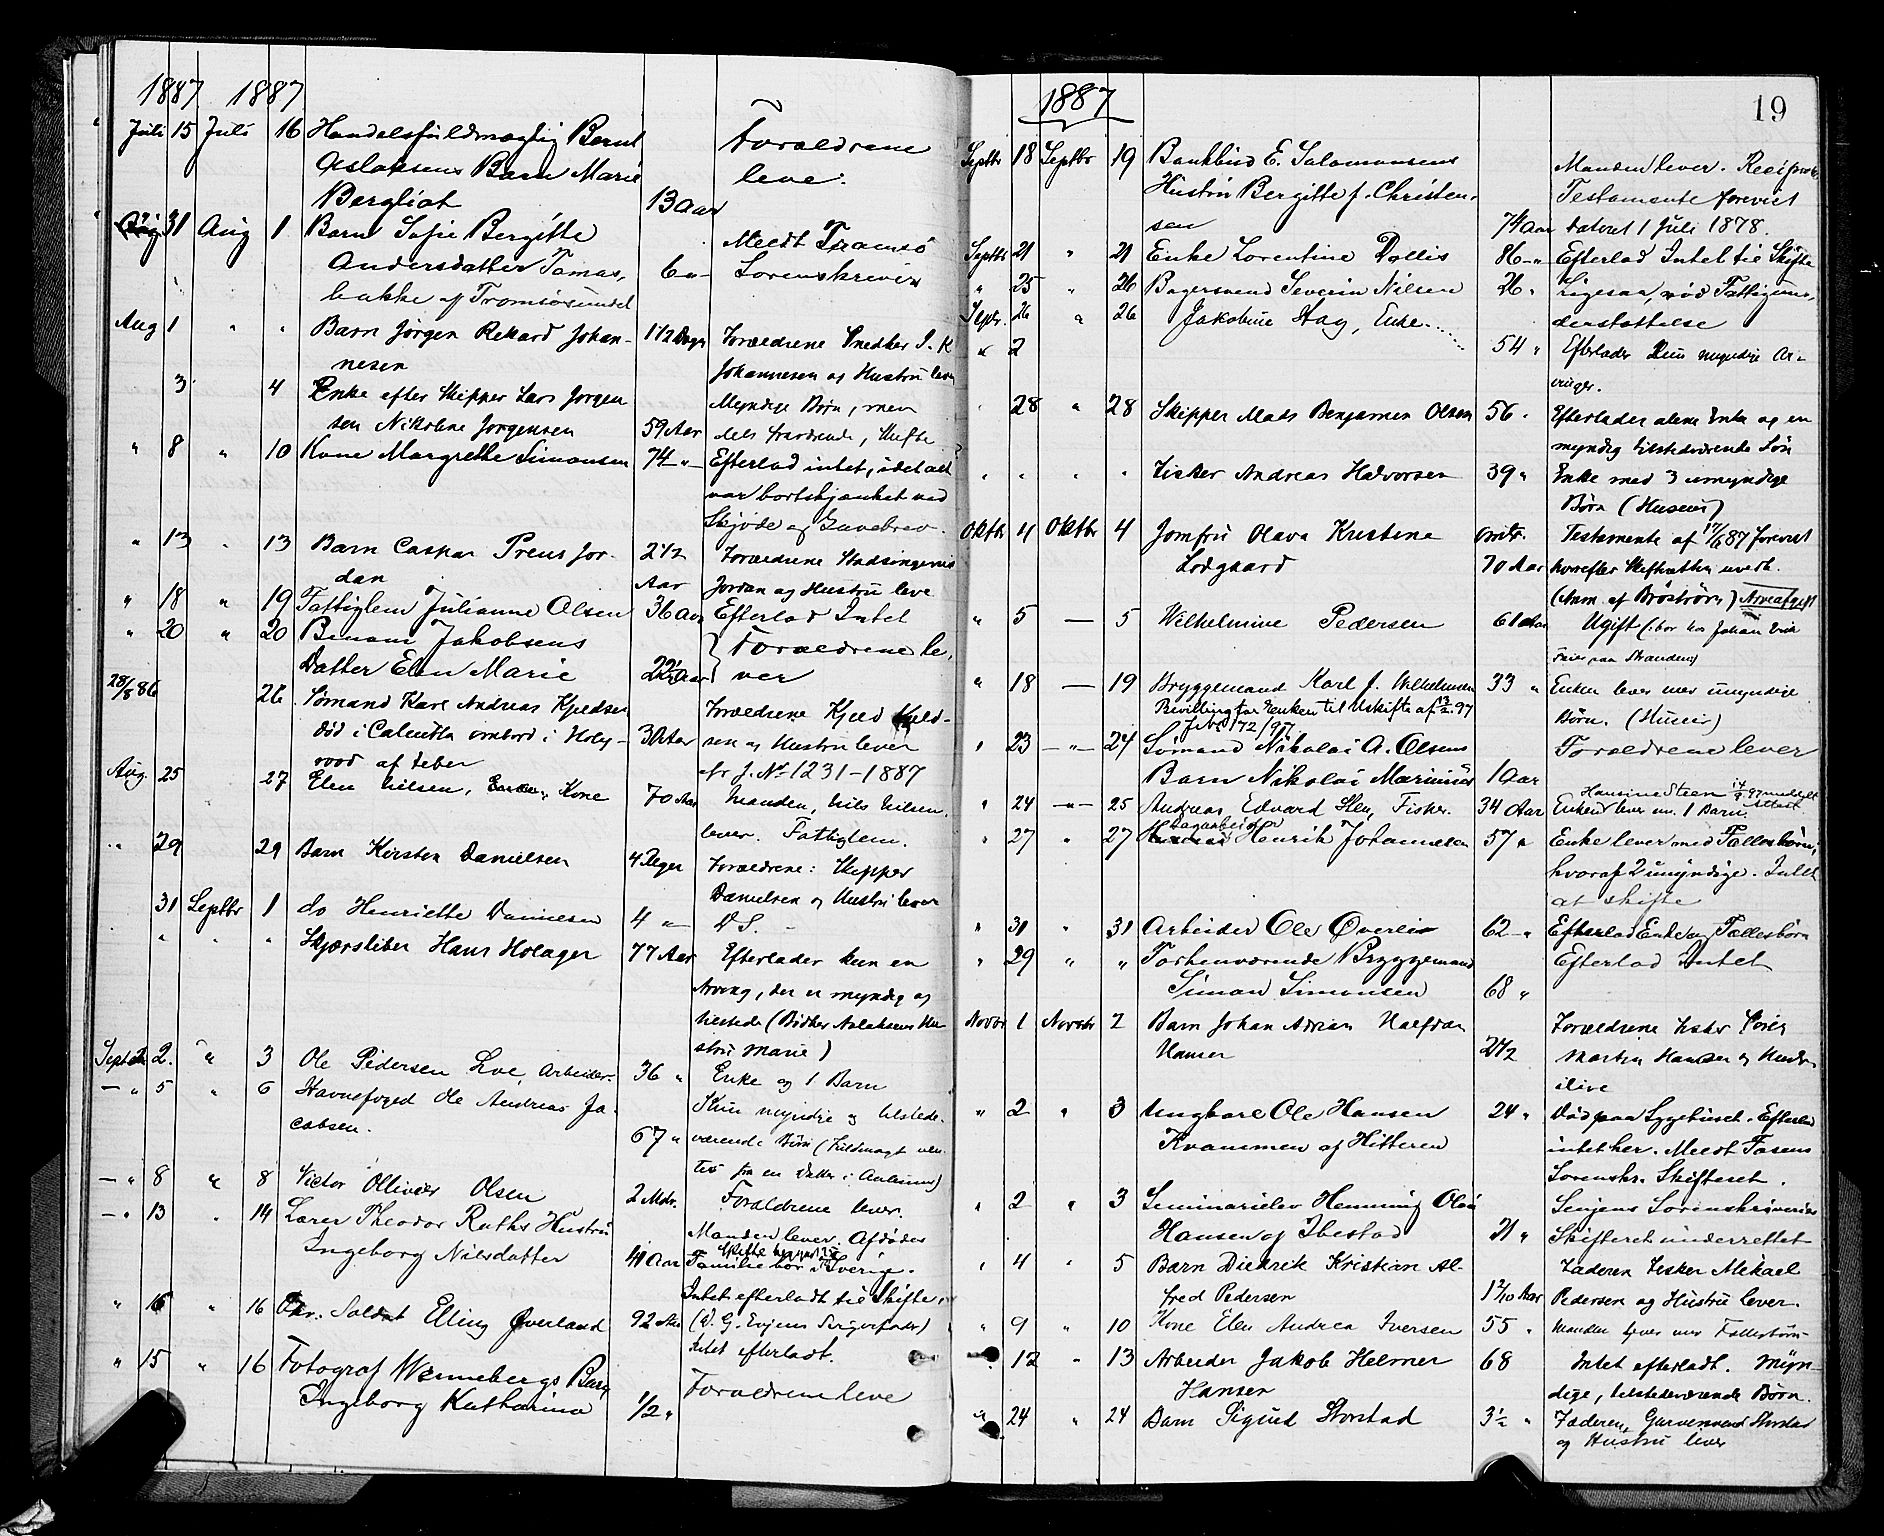 1887 1887
Juli 15 Juli 16 Handelsfuldmægtig Bernt Forældrene
Aslaksens Barn Marie leve.
Bergliot 13 Aar
31 Aug 1 Barn Sofie Bergitte Meldt Tromsö
Andersdatter Tomas- 6 " Sorenskriver
bakke af Tromsösundet
Aug 1 " " Barn Jørgen Rekard Johan- 1 1/2 Dage Forældrene Snedker J. K
nesen Johannesen og Hustru lever
3 4 Enke efter Skipper Lars Jörgen Myndige Börn, men
sen Nikoline Jörgensen 59 Aar dels fraværende, Skifte
" 8 " 10 Kone Margrethe Simonsen 74 " Efterlod intet, idet alt
var bortskjænket ved
Skjøde og Gavebrev.
" 13 . 13 Barn Caspar Preus Jor- 2 1/2 Forældrene Stadsingeniør
dan Aar Jordan og Hustru leve
" 18 " 19 Fattiglem Julianne Olsen 36 Aar Efterlod Intet
" 20 " 20 Benoni Jakobsens Forældrene le-
Datter Elen Marie 22 1/2 Aar ver
28/8 86 26 Sømand Karl Andreas Kjeldsen Forældrene Kjeld Kjeld-
död i Calcutta ombord i Holy- 30 Aar sen og Hustru lever
rood af feber cfr J. No 1231-1887
Aug. 25 27 Elen Nilsen, Kone 70 Aar Manden, Nils Nilsen,
lever. Fattiglem.
" 29 29 Barn Kirsten Danielsen 4 Dager Forældrene: Skipper
Danielsen og Hustru lever
31 Septbr 1 do Henriette Danielsen 4 " DS.
" " " Skjærsliber Hans Holager 77 Aar Efterlader kun en
Arving, der er myndig og
tilstede (Bödker Aslaksens Hu
stru Marie)
Septbr 2. " 3 Ole Pedersen Loe, Arbeider. 36 " Enke og 1 Barn
— " 5 " 6 Havnefoged Ole Andreas Ja- Kun myndige og tilstede-
cobsen. 67 " værende Börn (Fuldmagt ven-
tes fra en Datter i Aalesund)
— " 8 " 8 Victor Olliver Olsen 2 Mdr. Forældrene lever.
— " 13 . 14 Lærer Theodor Ruths Hustru Manden lever. Afdödes
Ingeborg Nilsdatter 41 Aar Familie bor i Sverige.
Intet efterladt til Skifte.
" 15 " 16 Fhv. Soldat Elling Överland 92 Aar (D. G. Evjens Svigerfader)
Intet efterladt.
" 15 " 16 Fotograf Wennebergs Barn
Ingeborg Katharina 1/2 " Forældrene leve
1887
19
Septbr 18 Septbr 19 Bankbud E. Salomonsens Manden lever. Reciprokt
Hustru Bergitte f. Christen- Testamente forevist
sen 74 Aar dateret 1 Juli 1878.
Septbr 21 " 21 Enke Lorentine Dollis 86 " Efterlod Intet til Skifte
" 25 " 26 Bagersvend Severin Nilsen 26 " Ligesaa, nöd Fattigun-
Septr. 26 " 26 Jakobine Hay, Enke derstøttelse
" 2 54 " Efterlader kun myndige Ar-
vinger.
. 28 " 28 Skipper Mads Benjamin Olsen 56 . Efterlader alene Enke og en
myndig tilstedeværende Sön
" " " Fisker Andreas Halvorsen 39 " Enke med 3 umyndige
Börn (Huseier)
Oktbr 4 Oktbr 4 Jomfru Olava Kristine omtr. Testamente af 17/6 87 forevist
Lodgaard 70 Aar hvorefter Skifteretten uvedk.
(Anm. af Bröström) Arveafgift
" 5 — 5 Wilhelmine Pedersen 61 Aar Ugift (: bor hos Johan Erik
Feier paa Stranden)
" 18 — 19 Bryggemand Karl J. Wilhelmsen 33 " Enken lever med umyndige
Bevilling for Enken til Uskifte af 13/2. 97 Börn. (Huseier)
Jfr. 172/97
" 23 — " — 24 Sömand Nikolai A. Olsens Forældrene lever
Barn Nikolai Marinius 1 Aar
Hansine Steen
" 24 — " — 25 Andreas Edvard Sten, Fisker. 34 Aar Enken lever m. 1 Barn. Attest
Dagarbeider
" 27 " 27 Henrik Johannesen 57 " Enke lever med Fællesbörn,
hvoraf 2 umyndige. Intet
at skifte
" 31 " 31 Arbeider Ole Øverli 62 — " Efterlod Enke og Fællesbörn
" 29 " " Forhenværende Bryggemand Efterlod intet
Simon Simonsen 68 "
Novbr 1 Novbr 2 Barn Johan Adrian Halfdan Forældrene Fisker
Hansen 2 1/2 Martin Hansen og Hustru
ilive
" 2 " 3 Ungkarl Ole Hansen 24 " Död paa Sygehuset. Efterlod
Kvansmen af Hitteren intet her. Meldt Fosens
Sorenskr. Skifteret.
" 2 " 3 Seminarielev Henning Olai Senjens Sorenskriveries
Hansen af Ibestad 21 " Skifteret underrettet
" 4 " 5 Barn Diedrik Kristian Al- Faderen Fisker Mikael
fred Pedersen 1 2/10 Aar Pedersen og Hustru lever.
" 9 " 10 Kone Elen Andrea Iversen 55 " Manden lever med Fællesbörn
12 " 13 Arbeider Jakob Helmer 68 Intet efterladt. Myn-
Hansen dige, tilstedeværende Börn.
" 24 " 24 Barn Sigurd Storstad 3 1/2 " Faderen, Garversvend Storstad
og Hustru lever